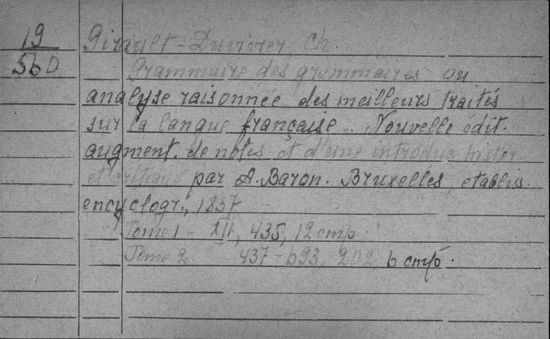 19
560
Girault-Duvivier Ch.
Grammaire des grammaires ou
analyse raisonnée des meilleurs traités
sur la langue française .. Nouvelle édit.
augment. de notes et d'une introduc. histor.
et critique par A. Baron. Bruxelles, etablis.
encyclogr., 1837
Tome 1 - XII, 435, 12 стр.
Tome 2. 437-693, 202, 6 стр.